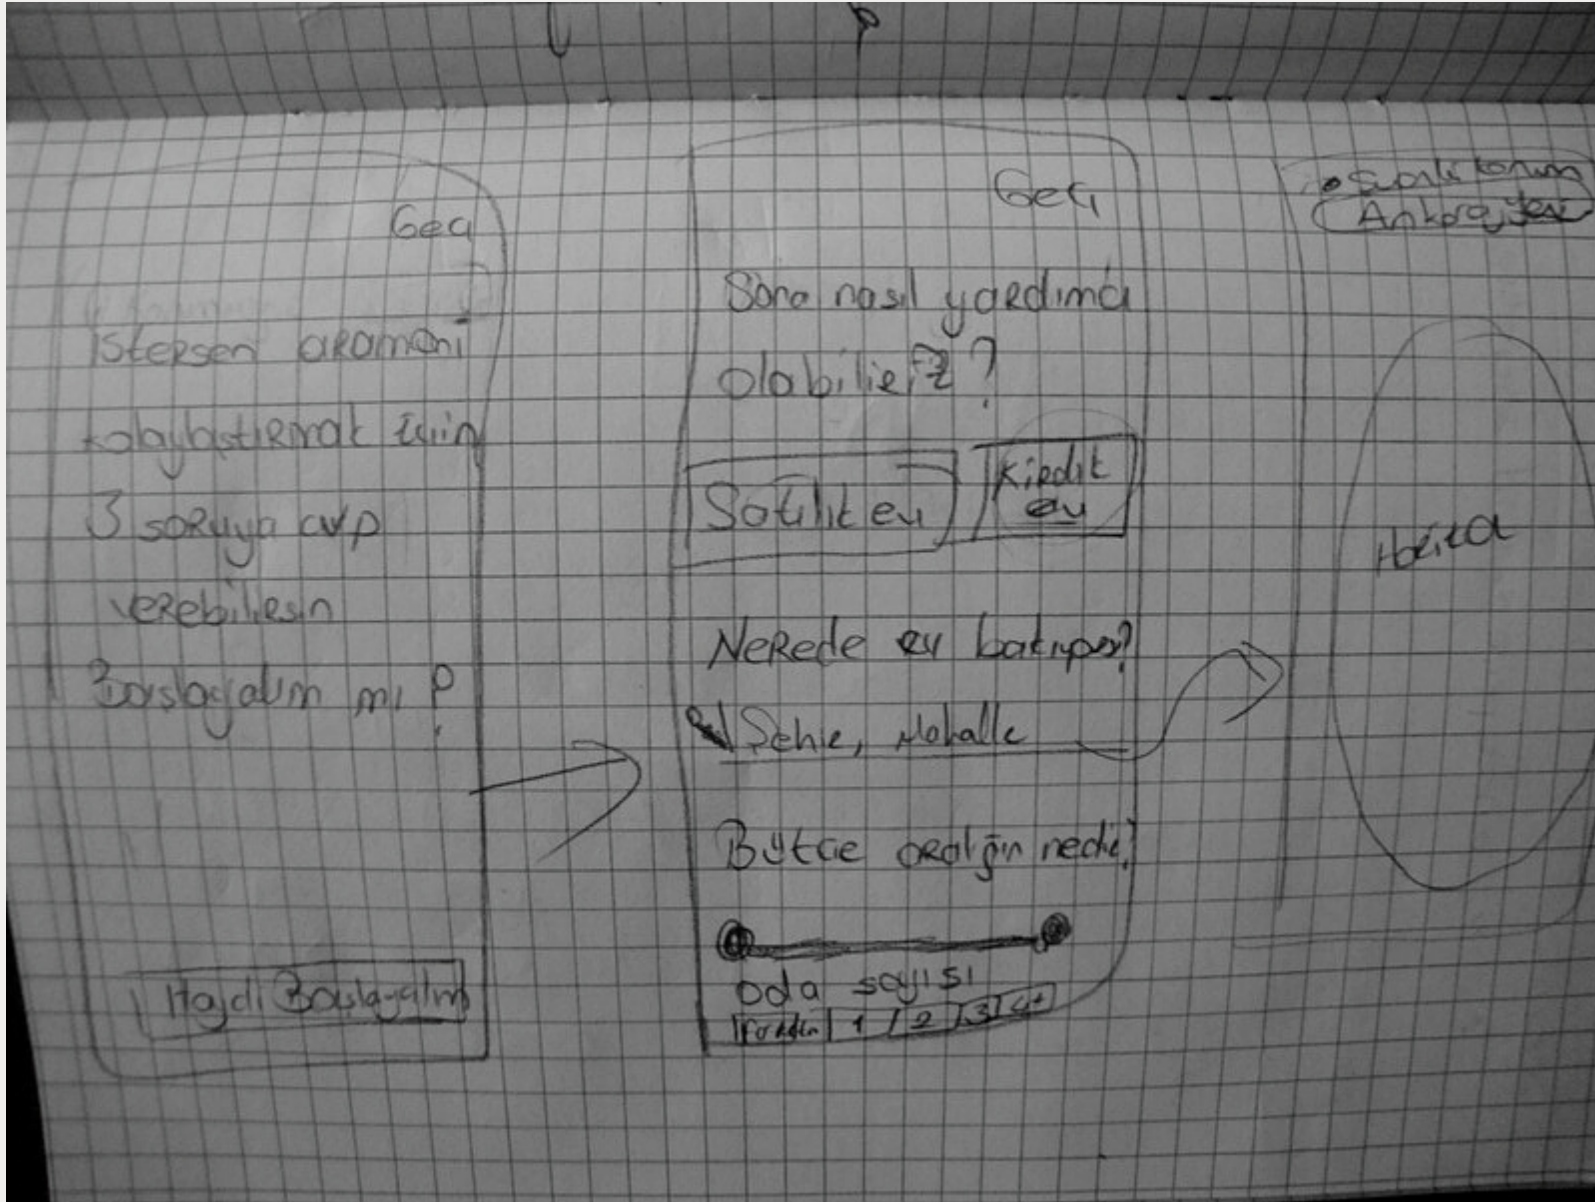 Geç
istersen aramanı
kolaylaştırmak için
3 soruya cvp
verebilirsin
Başlayalım mı ?
Haydi Başlayalım
Geç
Sana nasıl yardımcı
olabiliriz ?
Satılık ev
Kiralık
ev
Nerede ev bakıyor?
Şehir, Mahalle
Bütçe aralığın nedir?
oda sayısı
1 2 3 4+
konum
Ankara
Harita